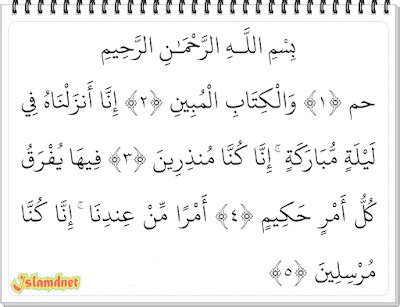 بِسْمِ اللَّـهِ الرَّحْمَـٰنِ الرَّحِيمِ
حم ﴿١﴾ وَالْكِتَابِ الْمُبِينِ ﴿٢﴾ إِنَّا أَنزَلْنَاهُ فِي
لَيْلَةٍ مُّبَارَكَةٍ ۚ إِنَّا كُنَّا مُنذِرِينَ ﴿٣﴾ فِيهَا يُفْرَقُ
كُلُّ أَمْرٍ حَكِيمٍ ﴿٤﴾ أَمْرًا مِّنْ عِندِنَا ۚ إِنَّا كُنَّا
مُرْسِلِينَ ﴿٥﴾
Islamdnet